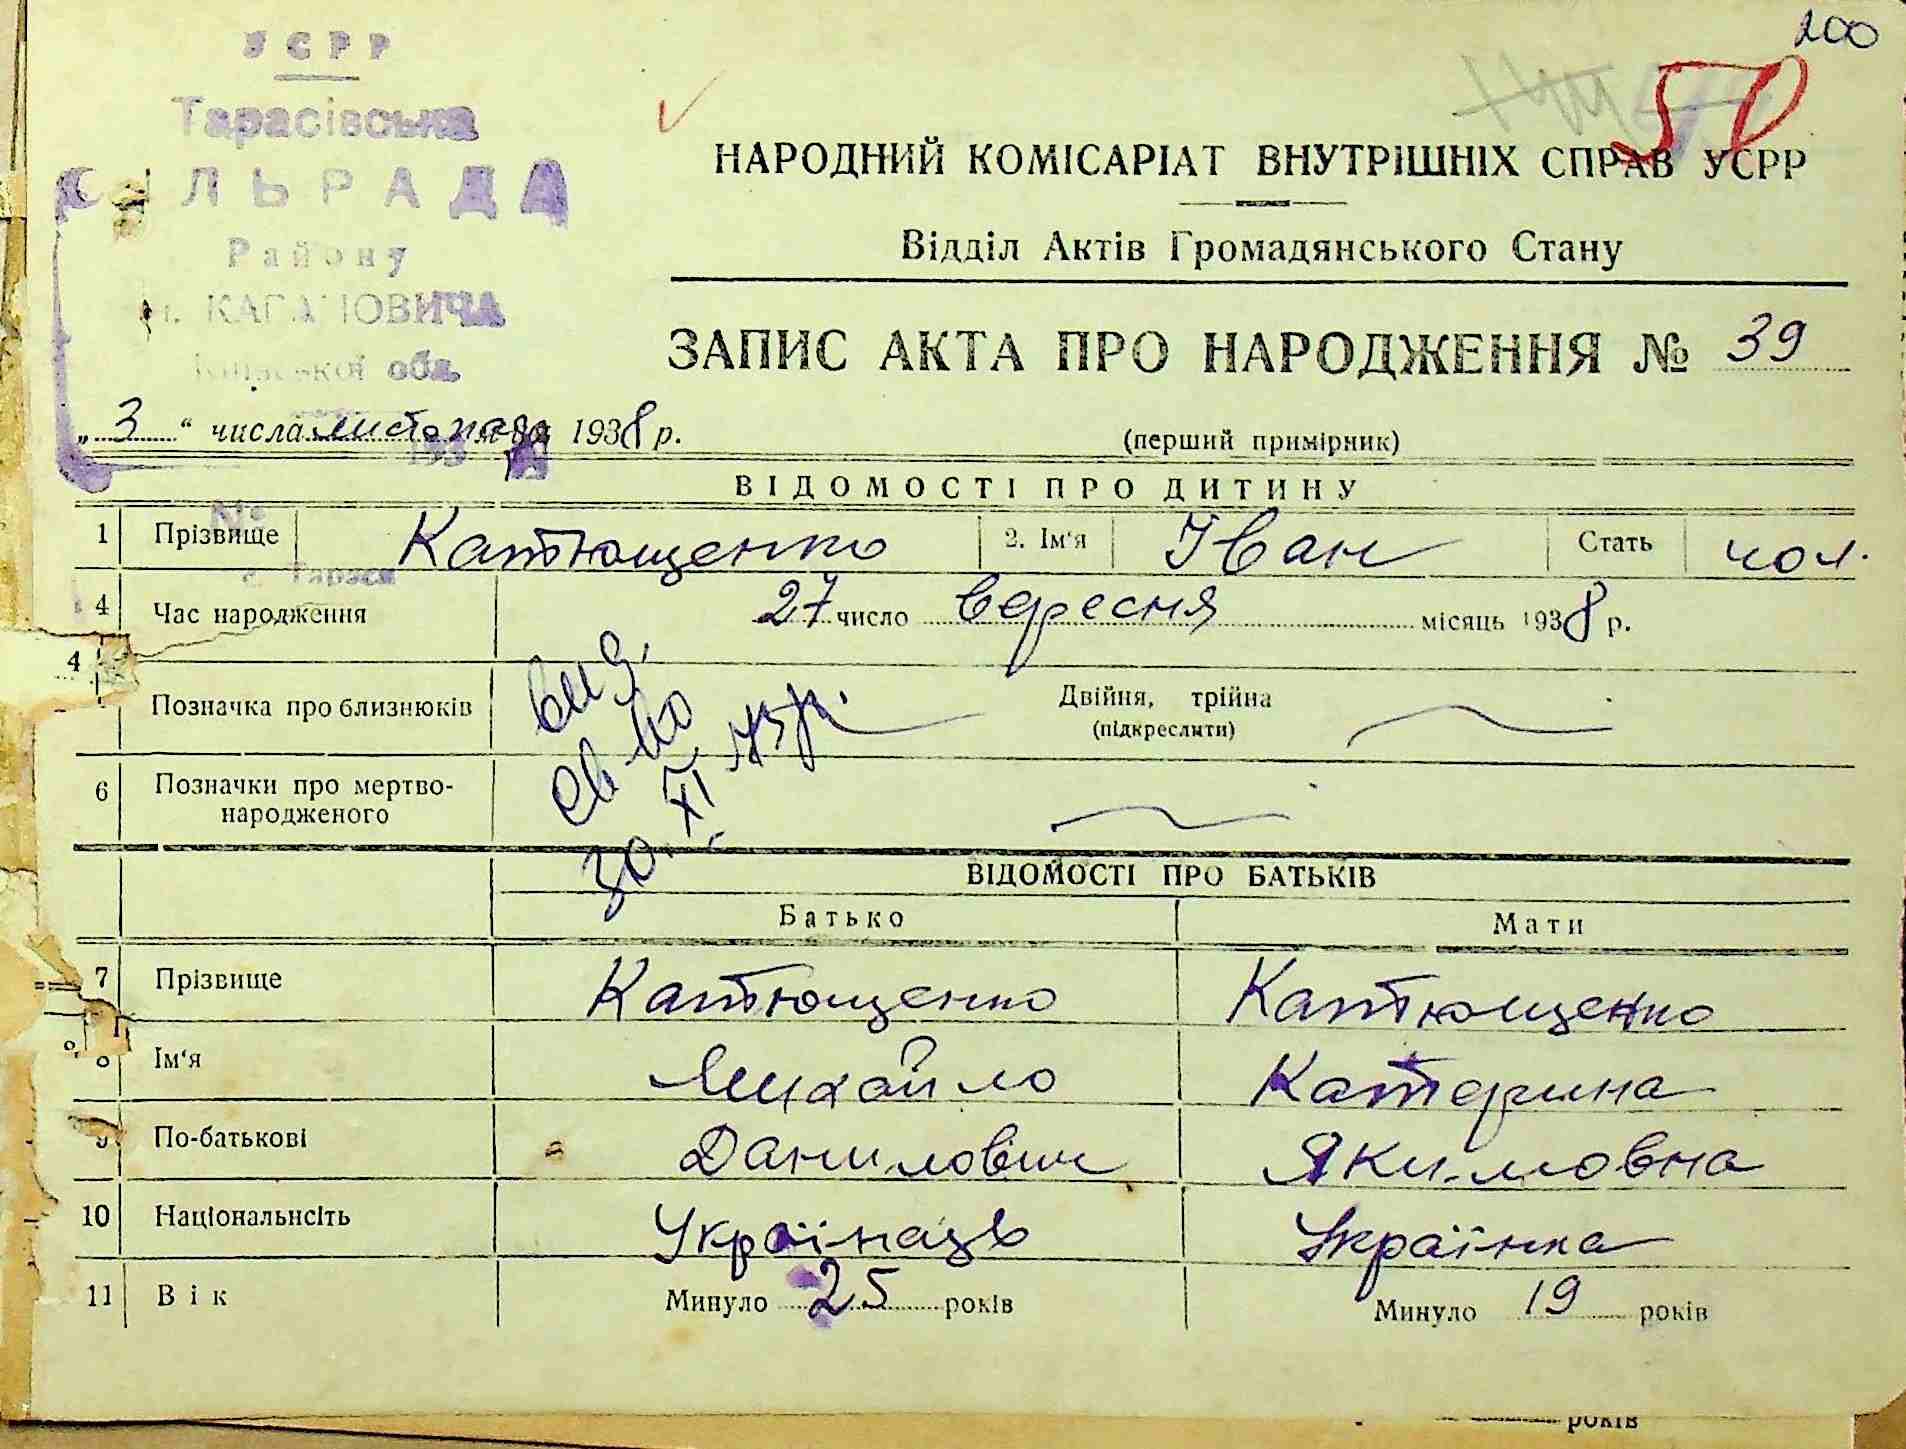 200
50
УСРР
Тарасівська
СІЛЬРАДА
Району
КАГАНОВИЧА
Київської обл.
НАРОДНИЙ КОМІСАРІАТ ВНУТРІШНІХ СПРАВ УСРР
Відділ Актів Громадянського Стану
ЗАПИС АКТА ПРО НАРОДЖЕННЯ № 39
„3“ числа листопада 1938 р.
(перший примірник)
193
№
с. Тараси
ВІДОМОСТІ ПРО ДИТИНУ
1 Прізвище Катющенко 2. Ім'я Іван Стать чол.
4 Час народження 27 число вересня місяць 1938 р.
4
Позначка про близнюків Двійня, трійня
(підкреслити)
6 Позначки про мертво-
народженого
вид.
св-во
30 XI 43 р.
ВІДОМОСТІ ПРО БАТЬКІВ
Батько Мати
7 Прізвище Катющенко Катющенко
8 Ім'я Михайло Катерина
9 По-батькові Данилович Якимовна
10 Національнсіть Українець Українка
11 Вік Минуло 25 років Минуло 19 років
років